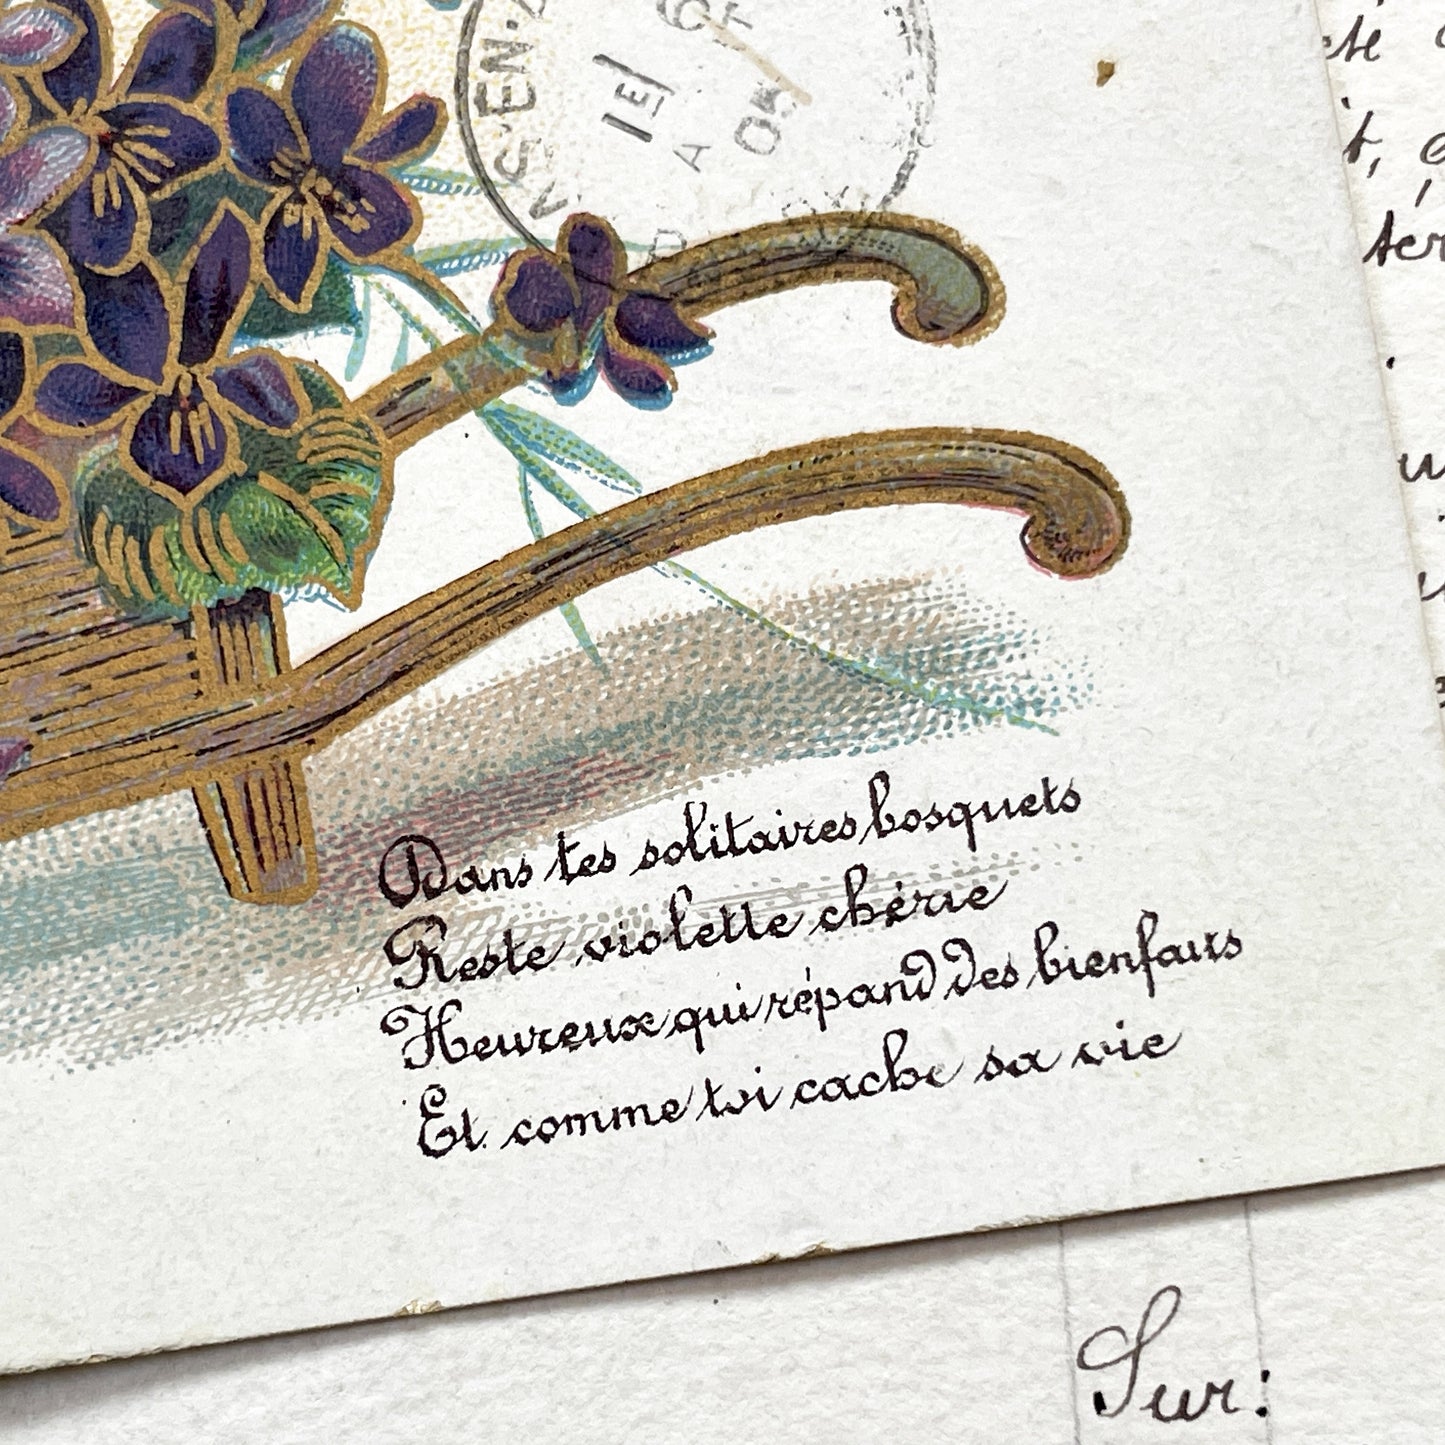 Dans tes solitaires bosquets
Reste violette chérie
Heureux qui répand des bienfaits
Et comme toi cache sa vie
Sur: